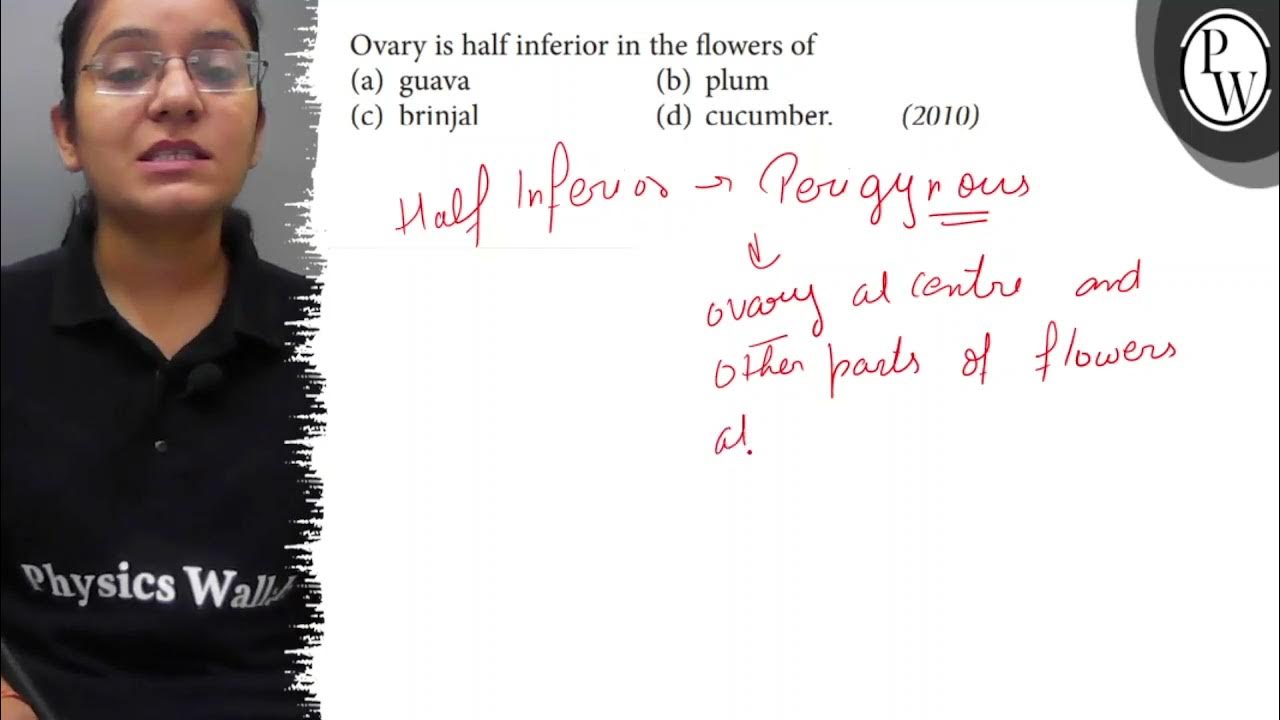 Ovary is half inferior in the flowers of
(a) guava (b) plum
(c) brinjal (d) cucumber. (2010)
PW
Half Inferior → Perigynous
↓
ovary at centre and
other parts of flowers
at
Physics Walla